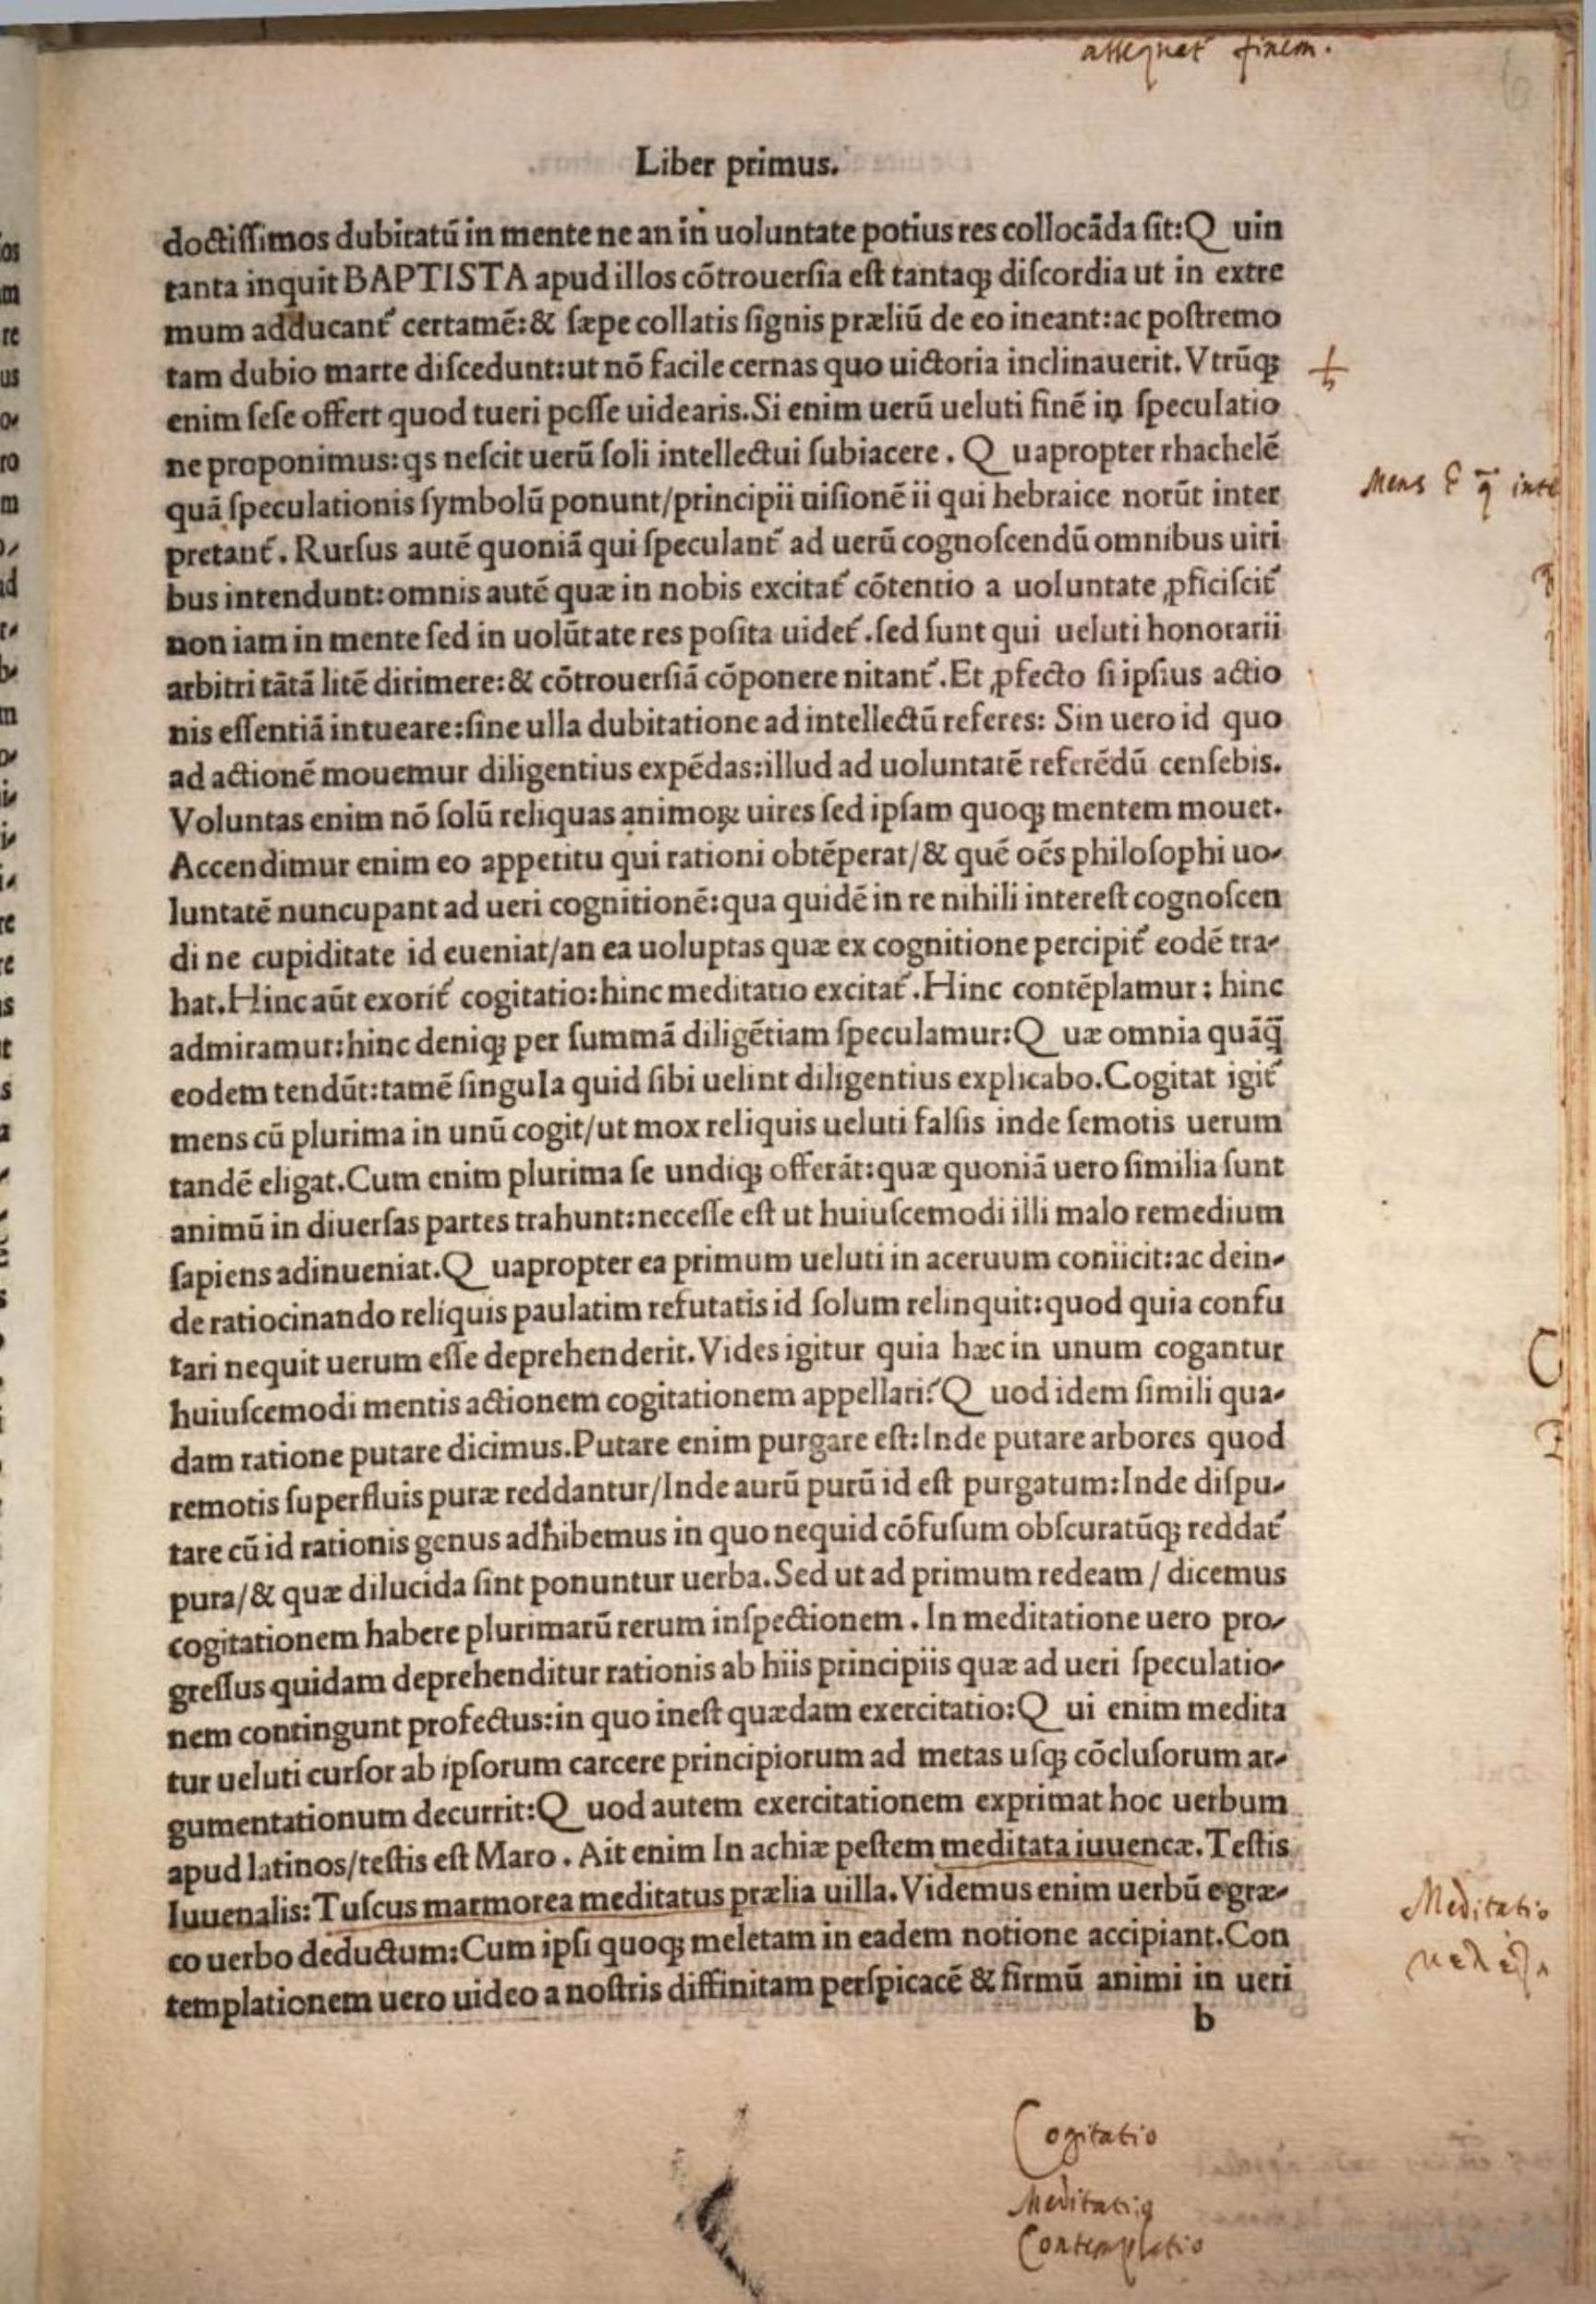 assequat finem.
6
Liber primus.
doctiſſimos dubitatū in mente ne an in uoluntate potius res collocāda ſit:Q uin
tanta inquit BAPTISTA apud illos cōtrouerſia eſt tantaqꝫ diſcordia ut in extre
mum adducant᷑ certamē:& ſæpe collatis ſignis præliū de eo ineant:ac poſtremo
tam dubio marte diſcedunt:ut nō facile cernas quo uictoria inclinauerit. Vtrūqꝫ
enim ſeſe offert quod tueri poſſe uidearis.Si enim uerū ueluti finē in ſpeculatio
ne proponimus:qs neſcit uerū ſoli intellectui ſubiacere. Q uapropter rhachelē
Mens
quā ſpeculationis ſymbolū ponunt/principii uiſionē ii qui hebraice norūt inter
pretant᷑. Rurſus autē quoniā qui ſpeculant᷑ ad uerū cognoſcendū omnibus uiri
bus intendunt:omnis autē quæ in nobis excitat᷑ cōtentio a uoluntate ꝓficiſcit᷑
non iam in mente ſed in uolūtate res poſita uidet᷑.ſed ſunt qui ueluti honorarii
arbitri tātā litē dirimere:& cōtrouerſiā cōponere nitant᷑.Et ꝓfecto ſi ipſius actio
nis eſſentiā intueare:ſine ulla dubitatione ad intellectū referes: Sin uero id quo
ad actionē mouemur diligentius expēdas:illud ad uoluntatē referēdū cenſebis.
Voluntas enim nō ſolū reliquas animoꝝ uires ſed ipſam quoqꝫ mentem mouet.
Accendimur enim eo appetitu qui rationi obtēperat/& quē oēs philoſophi uo-
luntatē nuncupant ad ueri cognitionē:qua quidē in re nihili intereſt cognoſcen
di ne cupiditate id eueniat/an ea uoluptas quæ ex cognitione percipit᷑ eodē tra-
hat.Hinc aūt exorit᷑ cogitatio:hinc meditatio excitat᷑.Hinc contēplamur: hinc
admiramur:hinc deniqꝫ per ſummā diligētiam ſpeculamur:Q uæ omnia quāq̄
eodem tendūt:tamē ſingula quid ſibi uelint diligentius explicabo.Cogitat igit᷑
mens cū plurima in unū cogit/ut mox reliquis ueluti falſis inde ſemotis uerum
tandē eligat.Cum enim plurima ſe undiqꝫ offerāt:quæ quoniā uero ſimilia ſunt
animū in diuerſas partes trahunt:neceſſe eſt ut huiuſcemodi illi malo remedium
ſapiens adinueniat.Q uapropter ea primum ueluti in aceruum coniicit:ac dein-
de ratiocinando reliquis paulatim refutatis id ſolum relinquit:quod quia confu
tari nequit uerum eſſe deprehenderit.Vides igitur quia hæc in unum cogantur
huiuſcemodi mentis actionem cogitationem appellari?Q uod idem ſimili qua-
dam ratione putare dicimus.Putare enim purgare eſt:Inde putare arbores quod
remotis ſuperfluis puræ reddantur/Inde aurū purū id eſt purgatum:Inde diſpu-
tare cū id rationis genus adhibemus in quo nequid cōfuſum obſcuratūqꝫ reddat᷑
pura/& quæ dilucida ſint ponuntur uerba.Sed ut ad primum redeam / dicemus
cogitationem habere plurimarū rerum inſpectionem. In meditatione uero pro-
greſſus quidam deprehenditur rationis ab hiis principiis quæ ad ueri ſpeculatio-
nem contingunt profectus:in quo ineſt quædam exercitatio:Q ui enim medita
tur ueluti curſor ab ipſorum carcere principiorum ad metas uſqꝫ cōcluſorum ar-
gumentationum decurrit:Q uod autem exercitationem exprimat hoc uerbum
apud latinos/teſtis eſt Maro. Ait enim In achiæ peſtem meditata iuuencæ.Teſtis
Iuuenalis:Tuſcus marmorea meditatus prælia uilla.Videmus enim uerbū e græ-
Meditatio
co uerbo deductum:Cum ipſi quoqꝫ meletam in eadem notione accipiant.Con
templationem uero uideo a noſtris diffinitam perſpicacē & firmū animi in ueri
b
Cogitatio
Meditatio
Contemplatio